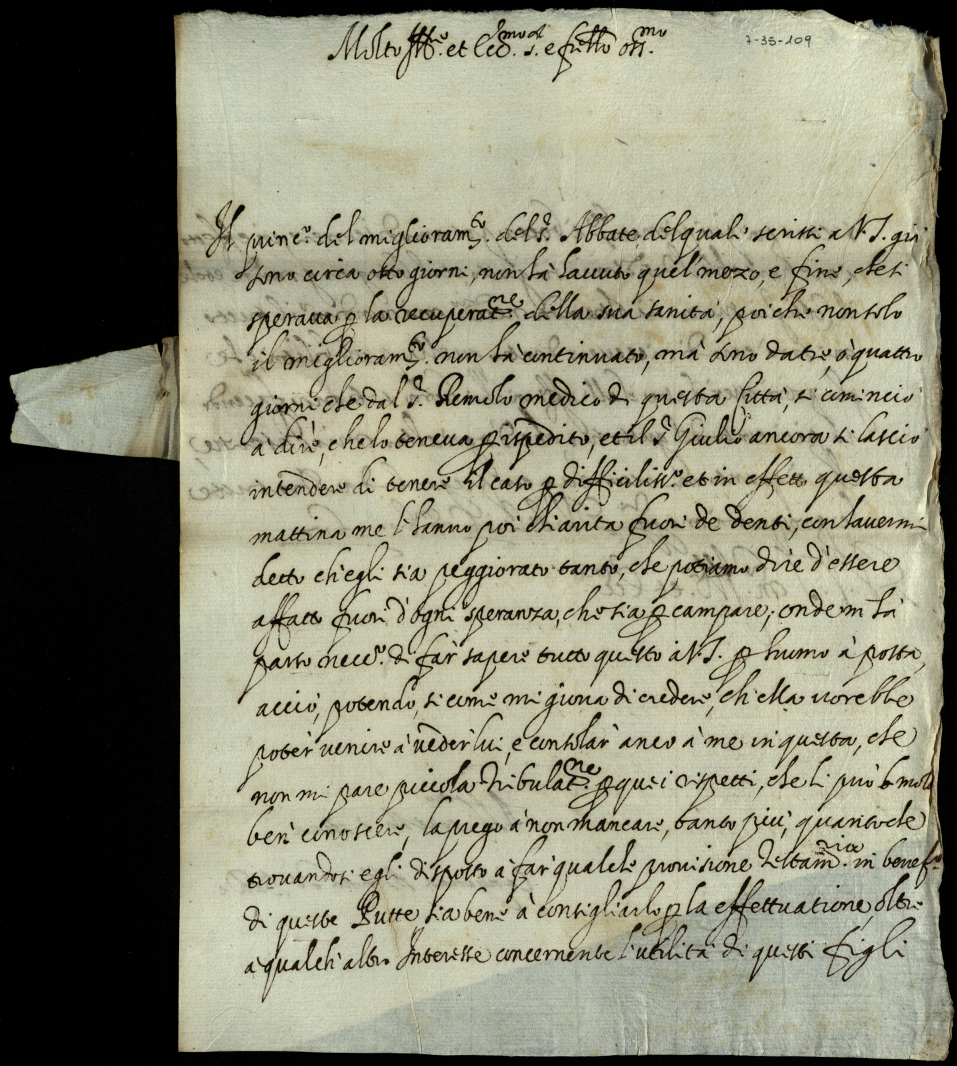 Molto Ill.re et Ecc.mo S.r e frello oss.mo
7-35-109
Il princ.o del miglioram.to del S.r Abbate, del quale scrissi a V.S. già
sono circa otto giorni, non hà havuto quel mezo, e fine, che si
sperava p la recuperat.ne della sua sanità, poiche non solo
il miglioram.to non hà continuato, mà sono da tre, ò quattro
giorni che dal S.r Remolo medico di questa Città, si cominciò
à dire, che lo teneva p ispedito, et il S.r Giulio ancora si lasciò
intendere di tenere il caso p difficiliss.o et in effetto questa
mattina me l'hanno poi chiarita fuori de denti, con havermi
detto ch'egli sia peggiorato tanto, che potiamo dire d'essere
affatto fuori d'ogni speranza, che sia p campare; onde m'hà
parso nece.o di far sapere tutto questo à V.S. p humo à posta,
acciò, potendo, si come mi giova di credere, ch'ella vorebbe
poter venire à veder lui, e consolar anco à me in questa, che
non mi pare piccola tribulat.ne p quei rispetti, che li può molto
ben conoscere, la prego à non mancare, tanto più, quanto che
trovandosi egli disposto a far qualche provisione testam.ria in benef.o
di queste Putte sia bene à consigliarlo p la effettuatione, oltre
a qualch'altro Interesse concernente l'utilità di questi figli